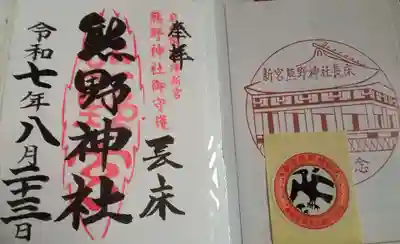 奉拝
熊野神社御守護
長床
熊野神社
令和七年八月二十三日
新宮熊野神社長床
念